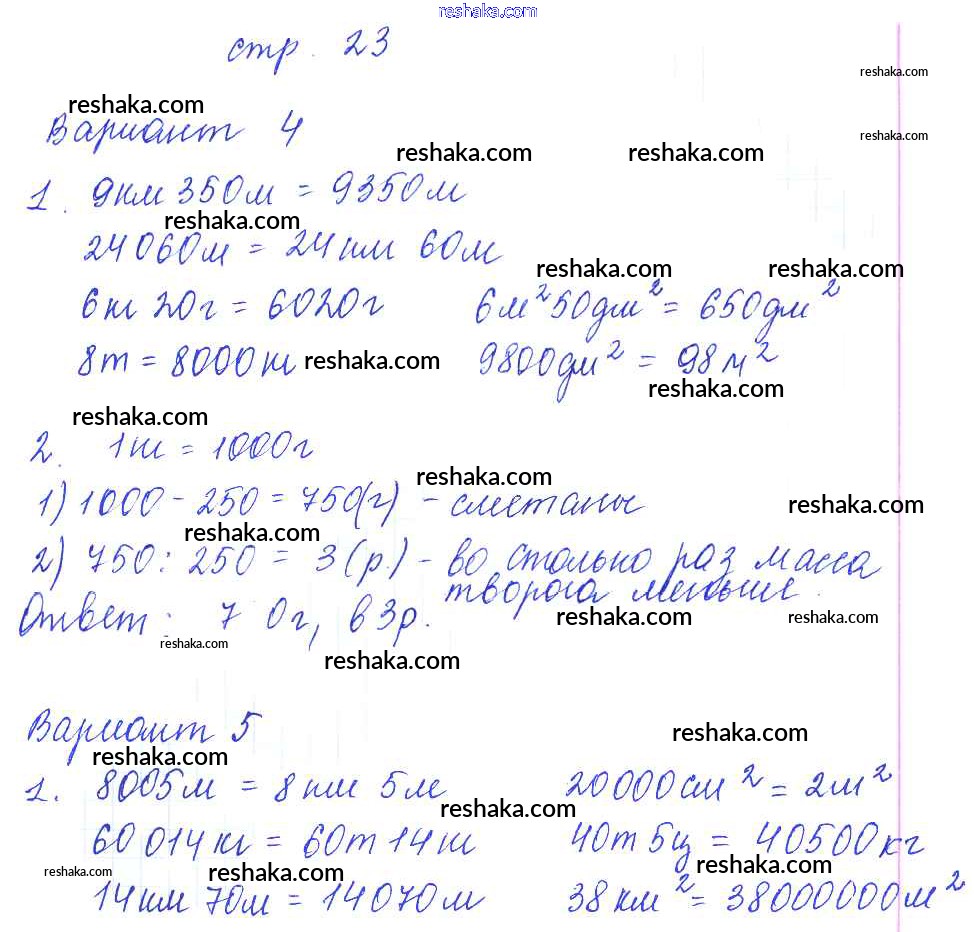 reshaka.com
стр. 23
reshaka.com
reshaka.com
Вариант 4
reshaka.com
reshaka.com reshaka.com
1. 9км 350м = 9350м
reshaka.com
24060м = 24км 60м
reshaka.com reshaka.com
6кг 20г = 6020г 6м² 50дм² = 650дм²
8т = 8000кг reshaka.com 9800дм² = 98м²
reshaka.com
reshaka.com
2. 1кг = 1000г
reshaka.com
1) 1000 - 250 = 750(г) - сметаны reshaka.com
reshaka.com
2) 750 : 250 = 3 (р.) - во столько раз масса
творога меньше.
Ответ: 7 0г, в 3р. reshaka.com reshaka.com
reshaka.com
reshaka.com
Вариант 5
reshaka.com
reshaka.com
1. 8005м = 8км 5м 20000см² = 2м²
reshaka.com
60014кг = 60т 14кг 40т 5ц = 40500кг
reshaka.com reshaka.com reshaka.com
14км 70м = 14070м 38км² = 38000000м²